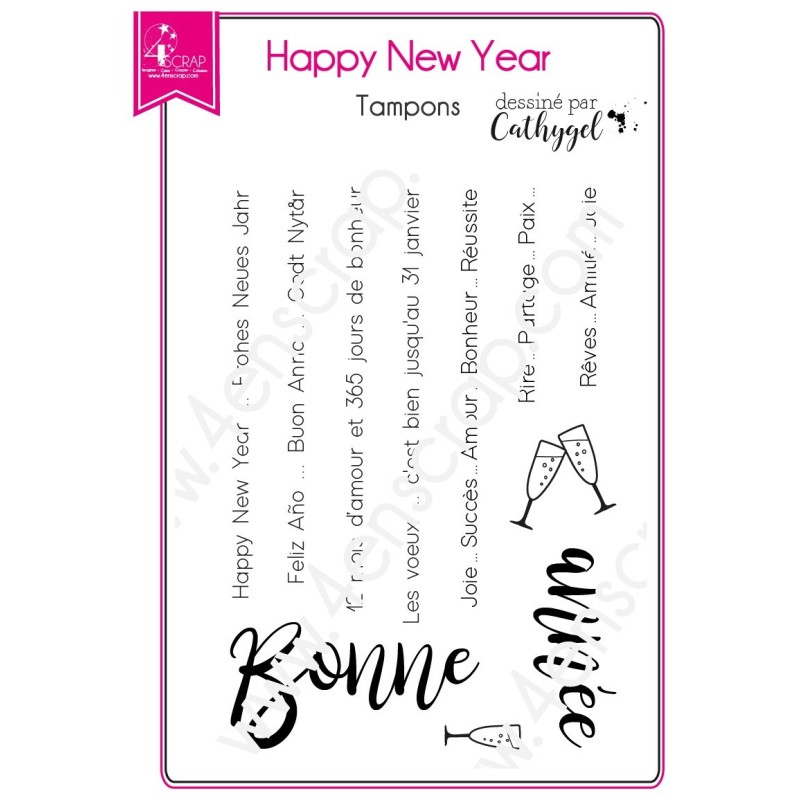 4enSCRAP
www.4enscrap.com
Happy New Year
Tampons
dessiné par
Cathygel
Happy New Year ... Frohes Neues Jahr
Feliz Año ... Buon Anno ... Godt Nytår
12 mois d'amour et 365 jours de bonheur
Les voeux ... c'est bien jusqu'au 31 janvier
Joie ... Succès ... Amour ... Bonheur ... Réussite
Rire ... Partage ... Paix ...
Rêves ... Amitié ... Joie
Bonne
année
www.4enscrap.com